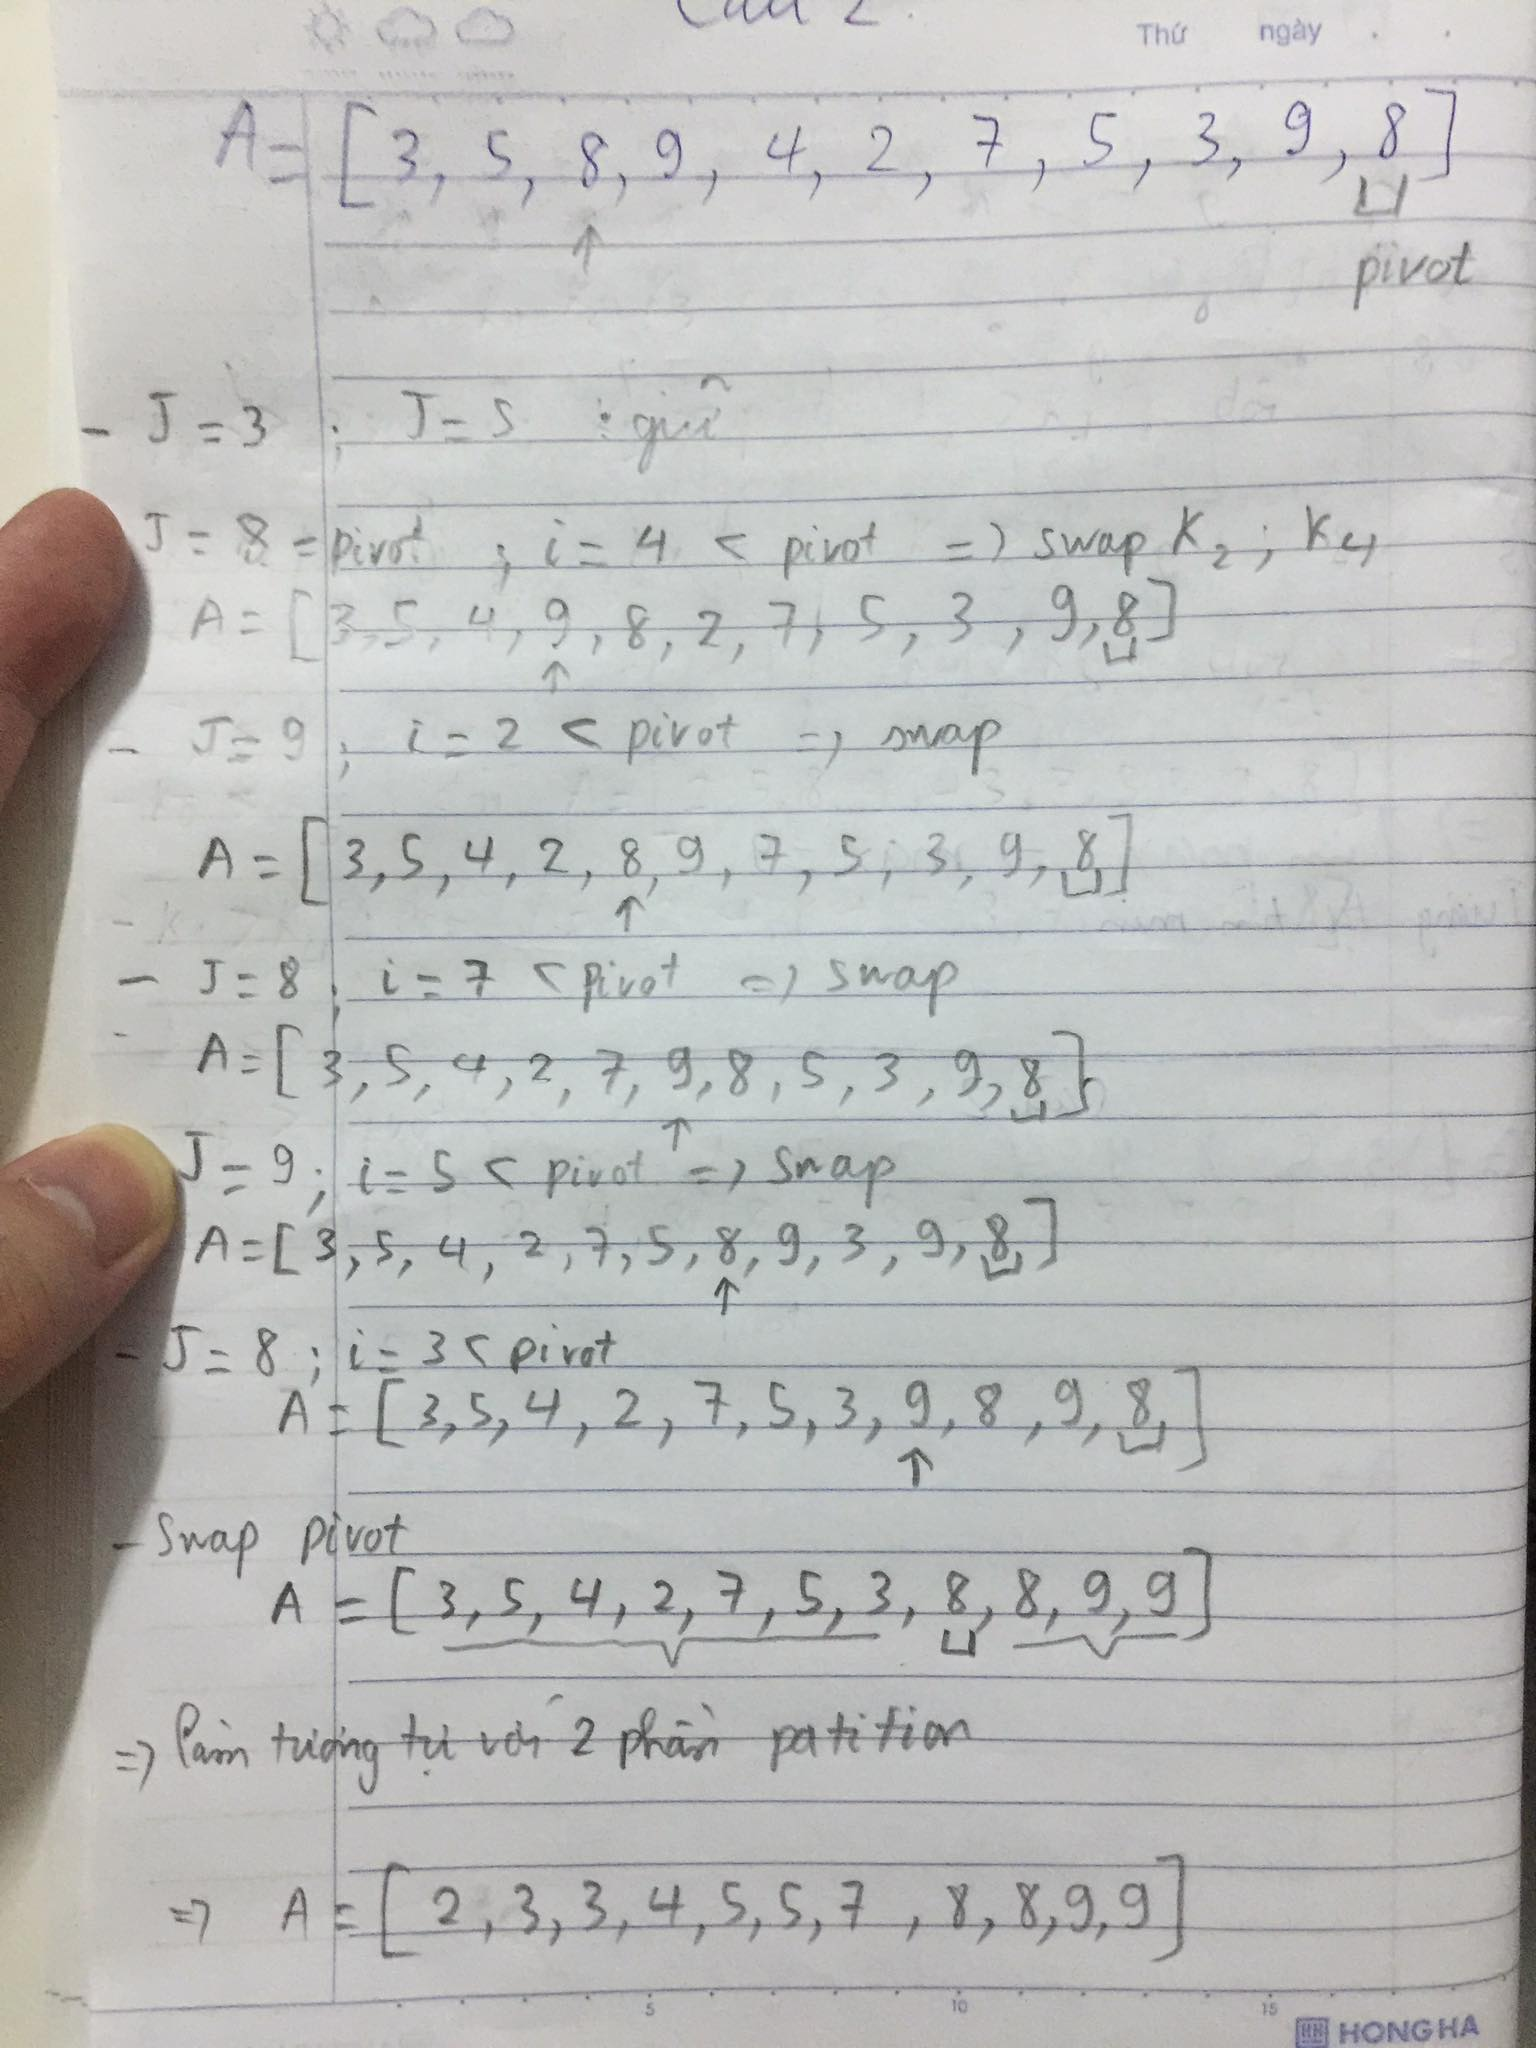 Câu 2.
Thứ ngày
A = [3, 5, 8, 9, 4, 2, 7, 5, 3, 9, 8]
↑
pivot
- J = 3 ; J = 5 : giữ
J = 8 = pivot ; i = 4 < pivot => swap K2 ; K4
A = [3, 5, 4, 9, 8, 2, 7, 5, 3, 9, 8]
↑
- J = 9 ; i = 2 < pivot => swap
A = [3, 5, 4, 2, 8, 9, 7, 5, 3, 9, 8]
↑
- J = 8 ; i = 7 < pivot => swap
A = [3, 5, 4, 2, 7, 9, 8, 5, 3, 9, 8]
↑
J = 9 ; i = 5 < pivot => swap
A = [3, 5, 4, 2, 7, 5, 8, 9, 3, 9, 8]
↑
- J = 8 ; i = 3 < pivot
A = [3, 5, 4, 2, 7, 5, 3, 9, 8, 9, 8]
↑
- Swap pivot
A = [3, 5, 4, 2, 7, 5, 3, 8, 8, 9, 9]
=> Làm tương tự với 2 phần patition
=> A = [2, 3, 3, 4, 5, 5, 7, 8, 8, 9, 9]
5 10 15
HH HONG HA